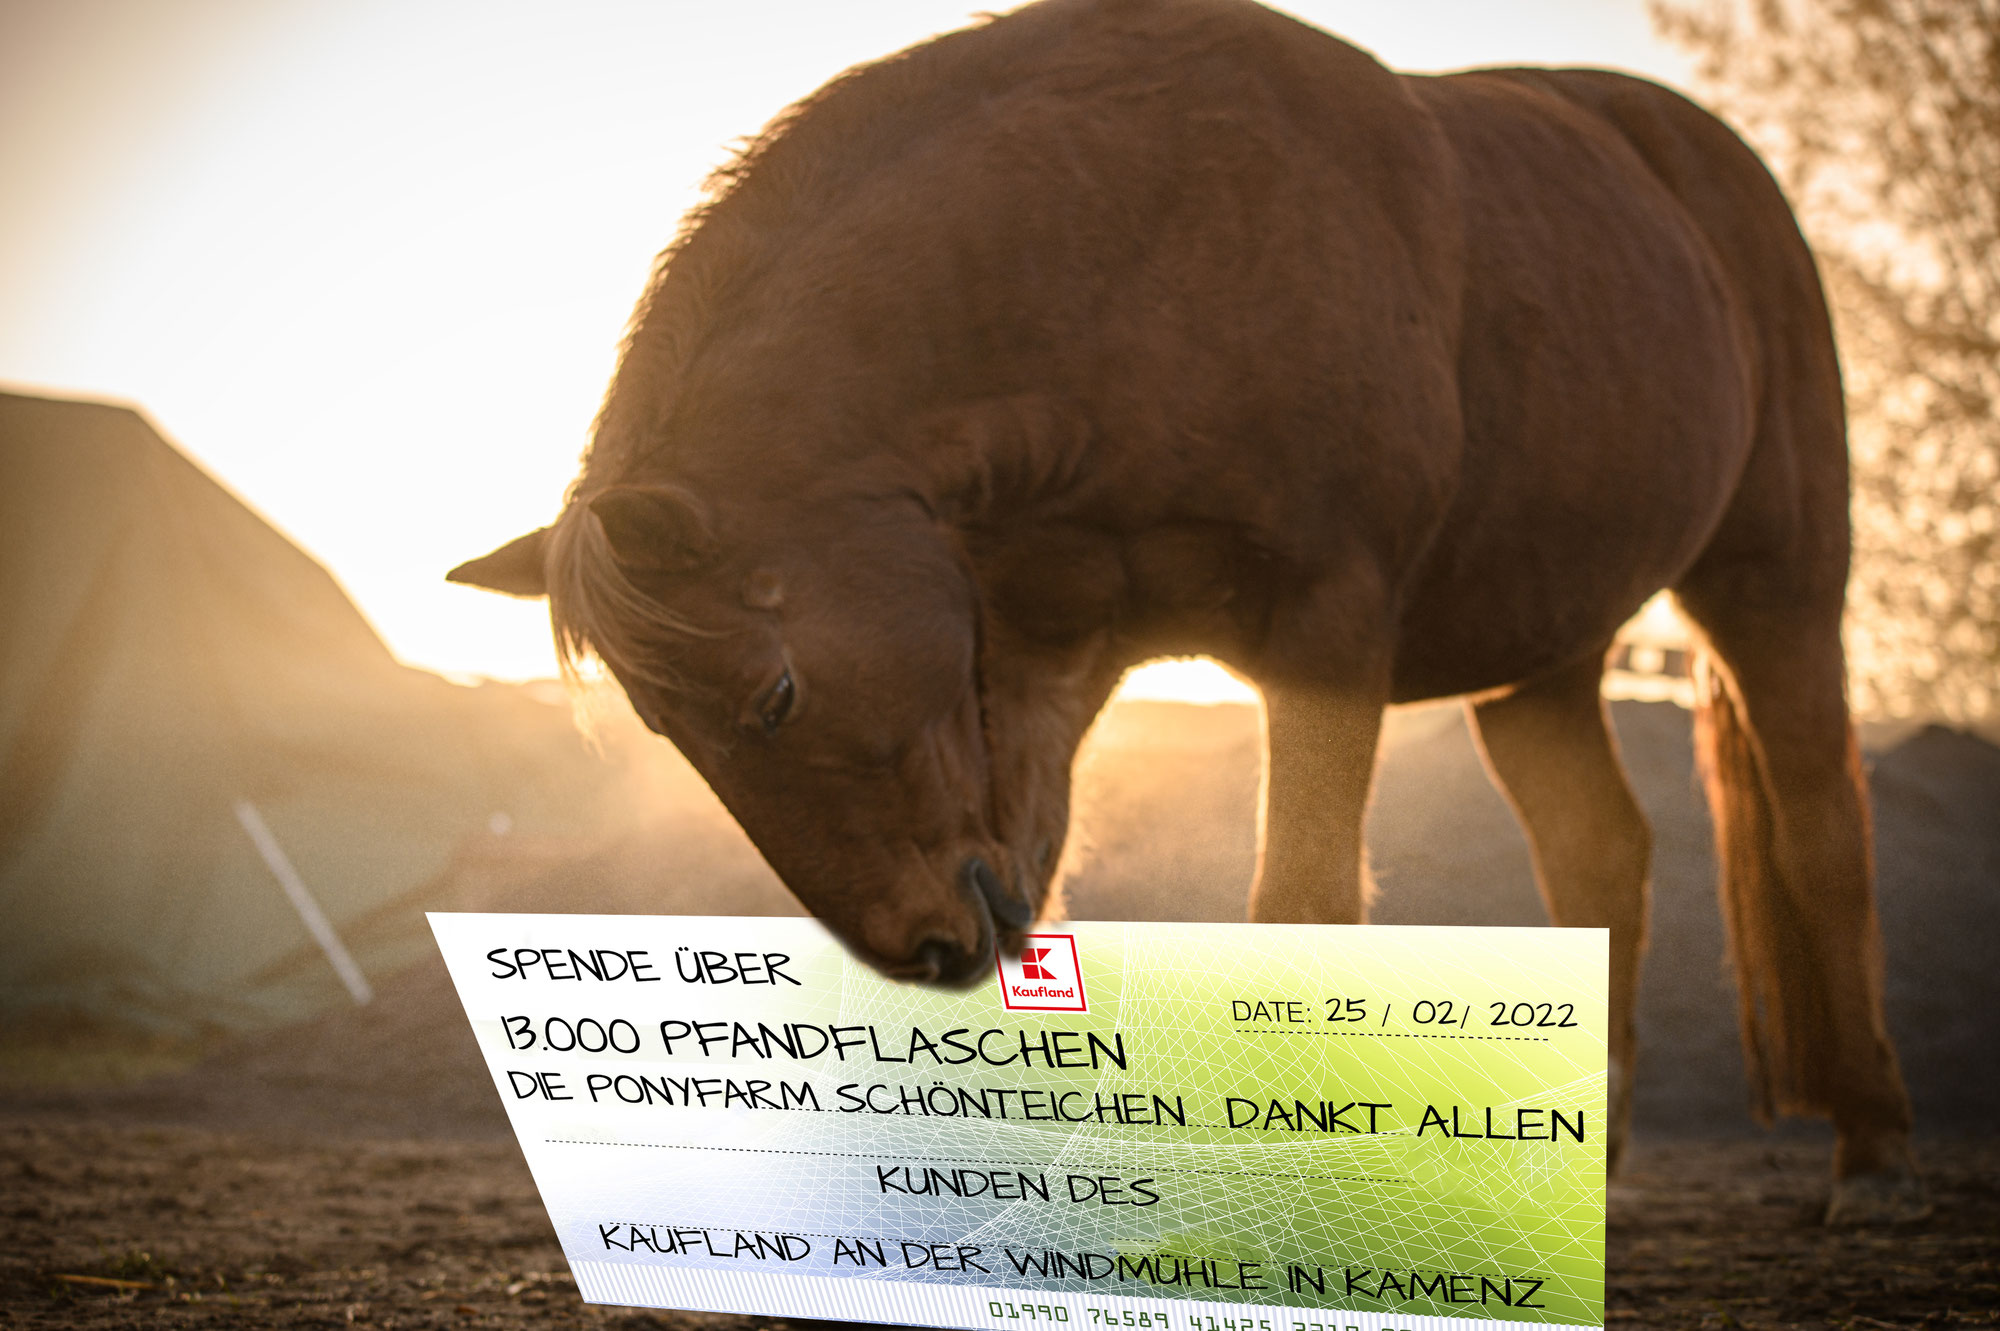 SPENDE ÜBER
Kaufland
DATE: 25 / 02/ 2022
13.000 PFANDFLASCHEN
DIE PONYFARM SCHÖNTEICHEN DANKT ALLEN
KUNDEN DES
KAUFLAND AN DER WINDMÜHLE IN KAMENZ
01990 76589 41425